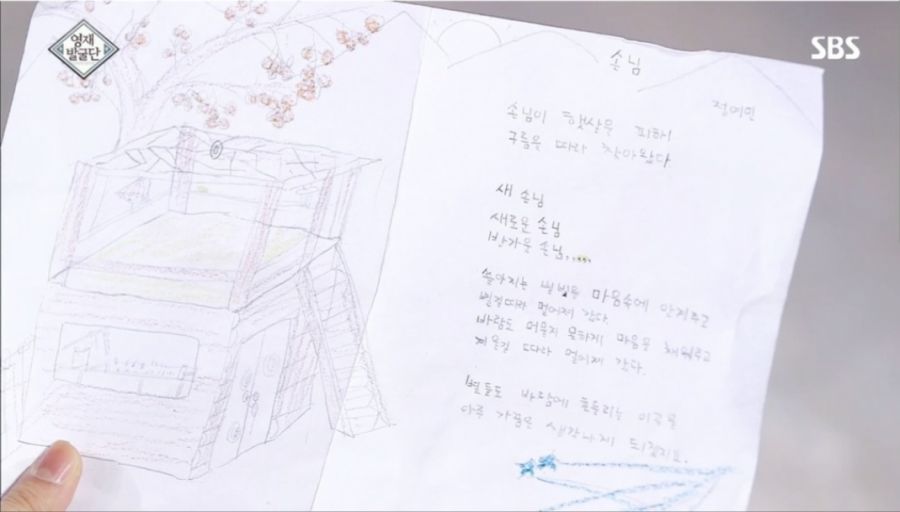 영재
발굴단
SBS
손님
정예민
손님이 햇살을 피해
구름을 따라 찾아왔다
새 손님
새로운 손님
반가운 손님,....
쏟아지는 별빛을 마음속에 안겨주고
별길따라 멀어져 갔다.
바람도 머물지 못하게 마음을 채워주고
따라 멀어져 간다.
별들도 바람에 흔들리는 이곳을
아주 가끔은 생각나게 되겠지요.